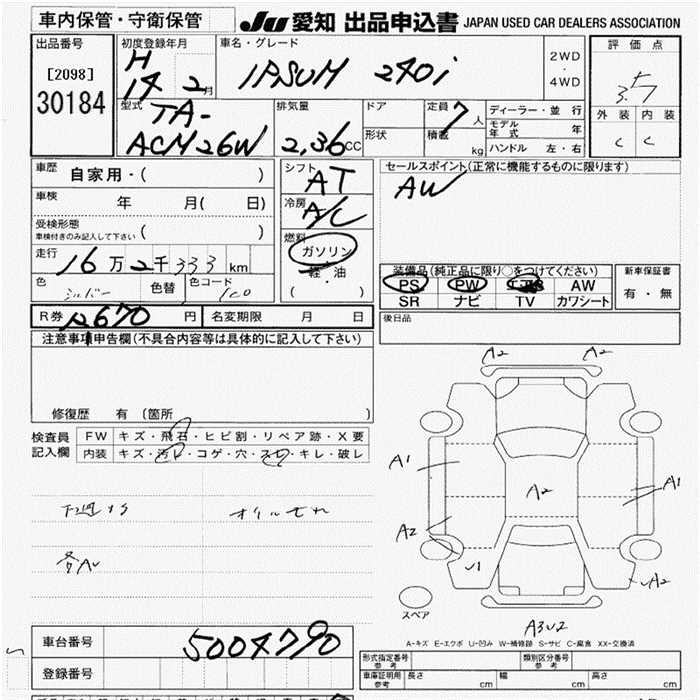 車内保管・守衛保管
JU 愛知 出品申込書 JAPAN USED CAR DEALERS ASSOCIATION
出品番号
[2098]
30184
初度登録年月
H
14 2月
車名・グレード
IPSUM 240i
2WD
・
4WD
評価点
3.5
外装 内装
C C
型式
TA-
ACM26W
排気量
2,36cc
ドア
形状
定員 7人
積載 kg
ディーラー・並行
モデル年式 年
ハンドル 左・右
車歴
自家用・( )
車検
年 月( 日)
受検形態
車検付きのみ記入して下さい ( )
走行
16万2千333km
色
シルバー
色替
色コード
1C0
シフト
AT
冷房
A/C
燃料
ガソリン
・
軽・油
( )
セールスポイント(正常に機能するものに限ります)
AW
装備品(純正品に限り○をつけてください)
PS PW エアB AW
SR ナビ TV カワシート
新車保証書
有・無
R券 12670円
名変期限 月 日
後日品
注意事項申告欄(不具合内容等は具体的に記入して下さい)
修復歴 有 (箇所
検査員記入欄
FW キズ・飛石・ヒビ割・リペア跡・X要
内装 キズ・汚レ・コゲ・穴・スレ・キレ・破レ
下廻サビ オイルモレ
各AU
A2 A2
A1
A2
A1
A2
U1
A2
スペア
A3U2
A-キズ E-エクボ U-凹み W-補修跡 S-サビ C-腐食 XX-交換済
車台番号
5004790
登録番号
形式指定番号 参考
類別区分番号 参考
車庫証明用 参考
長さ cm
幅 cm
高さ cm